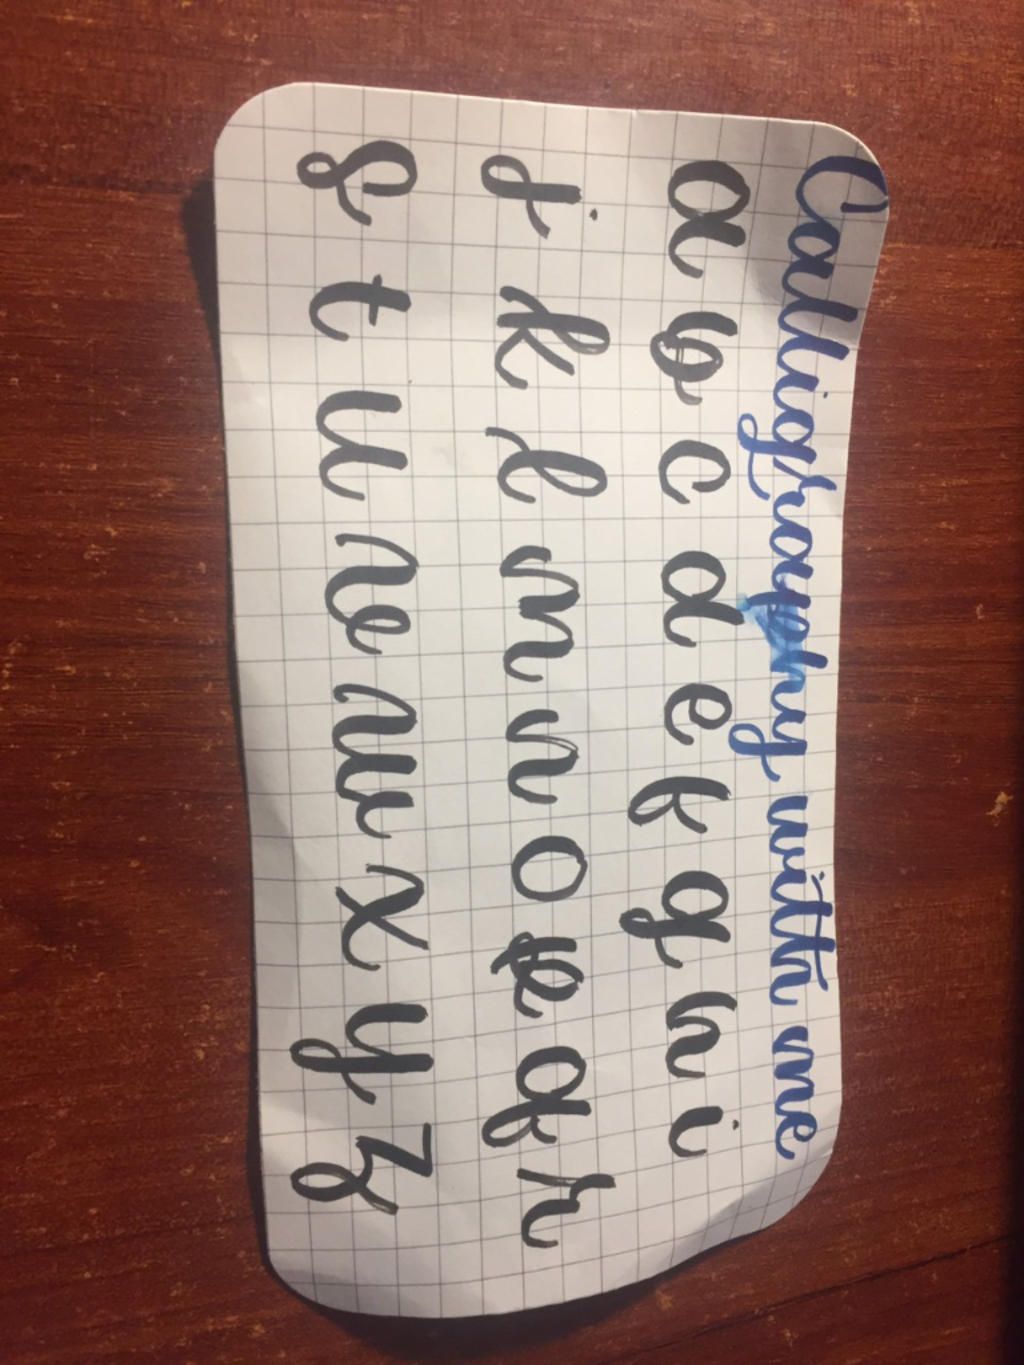 Calligraphy with me
a b c d e f g h i
j k l m n o p q r
s t u v w x y z